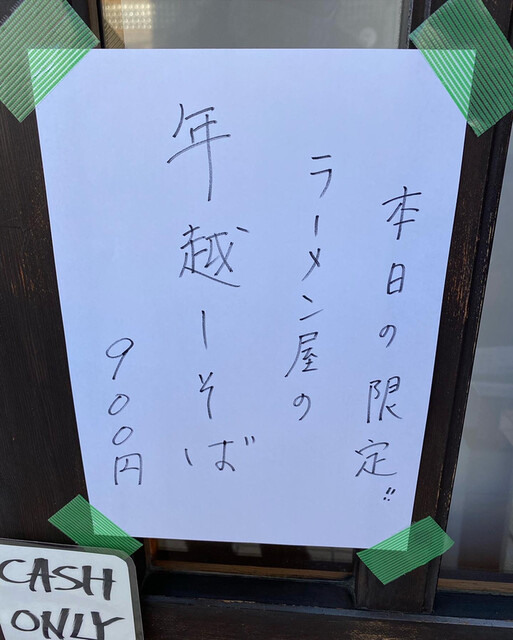 本日の限定!!
ラーメン屋の
年越しそば
900円
CASH
ONLY